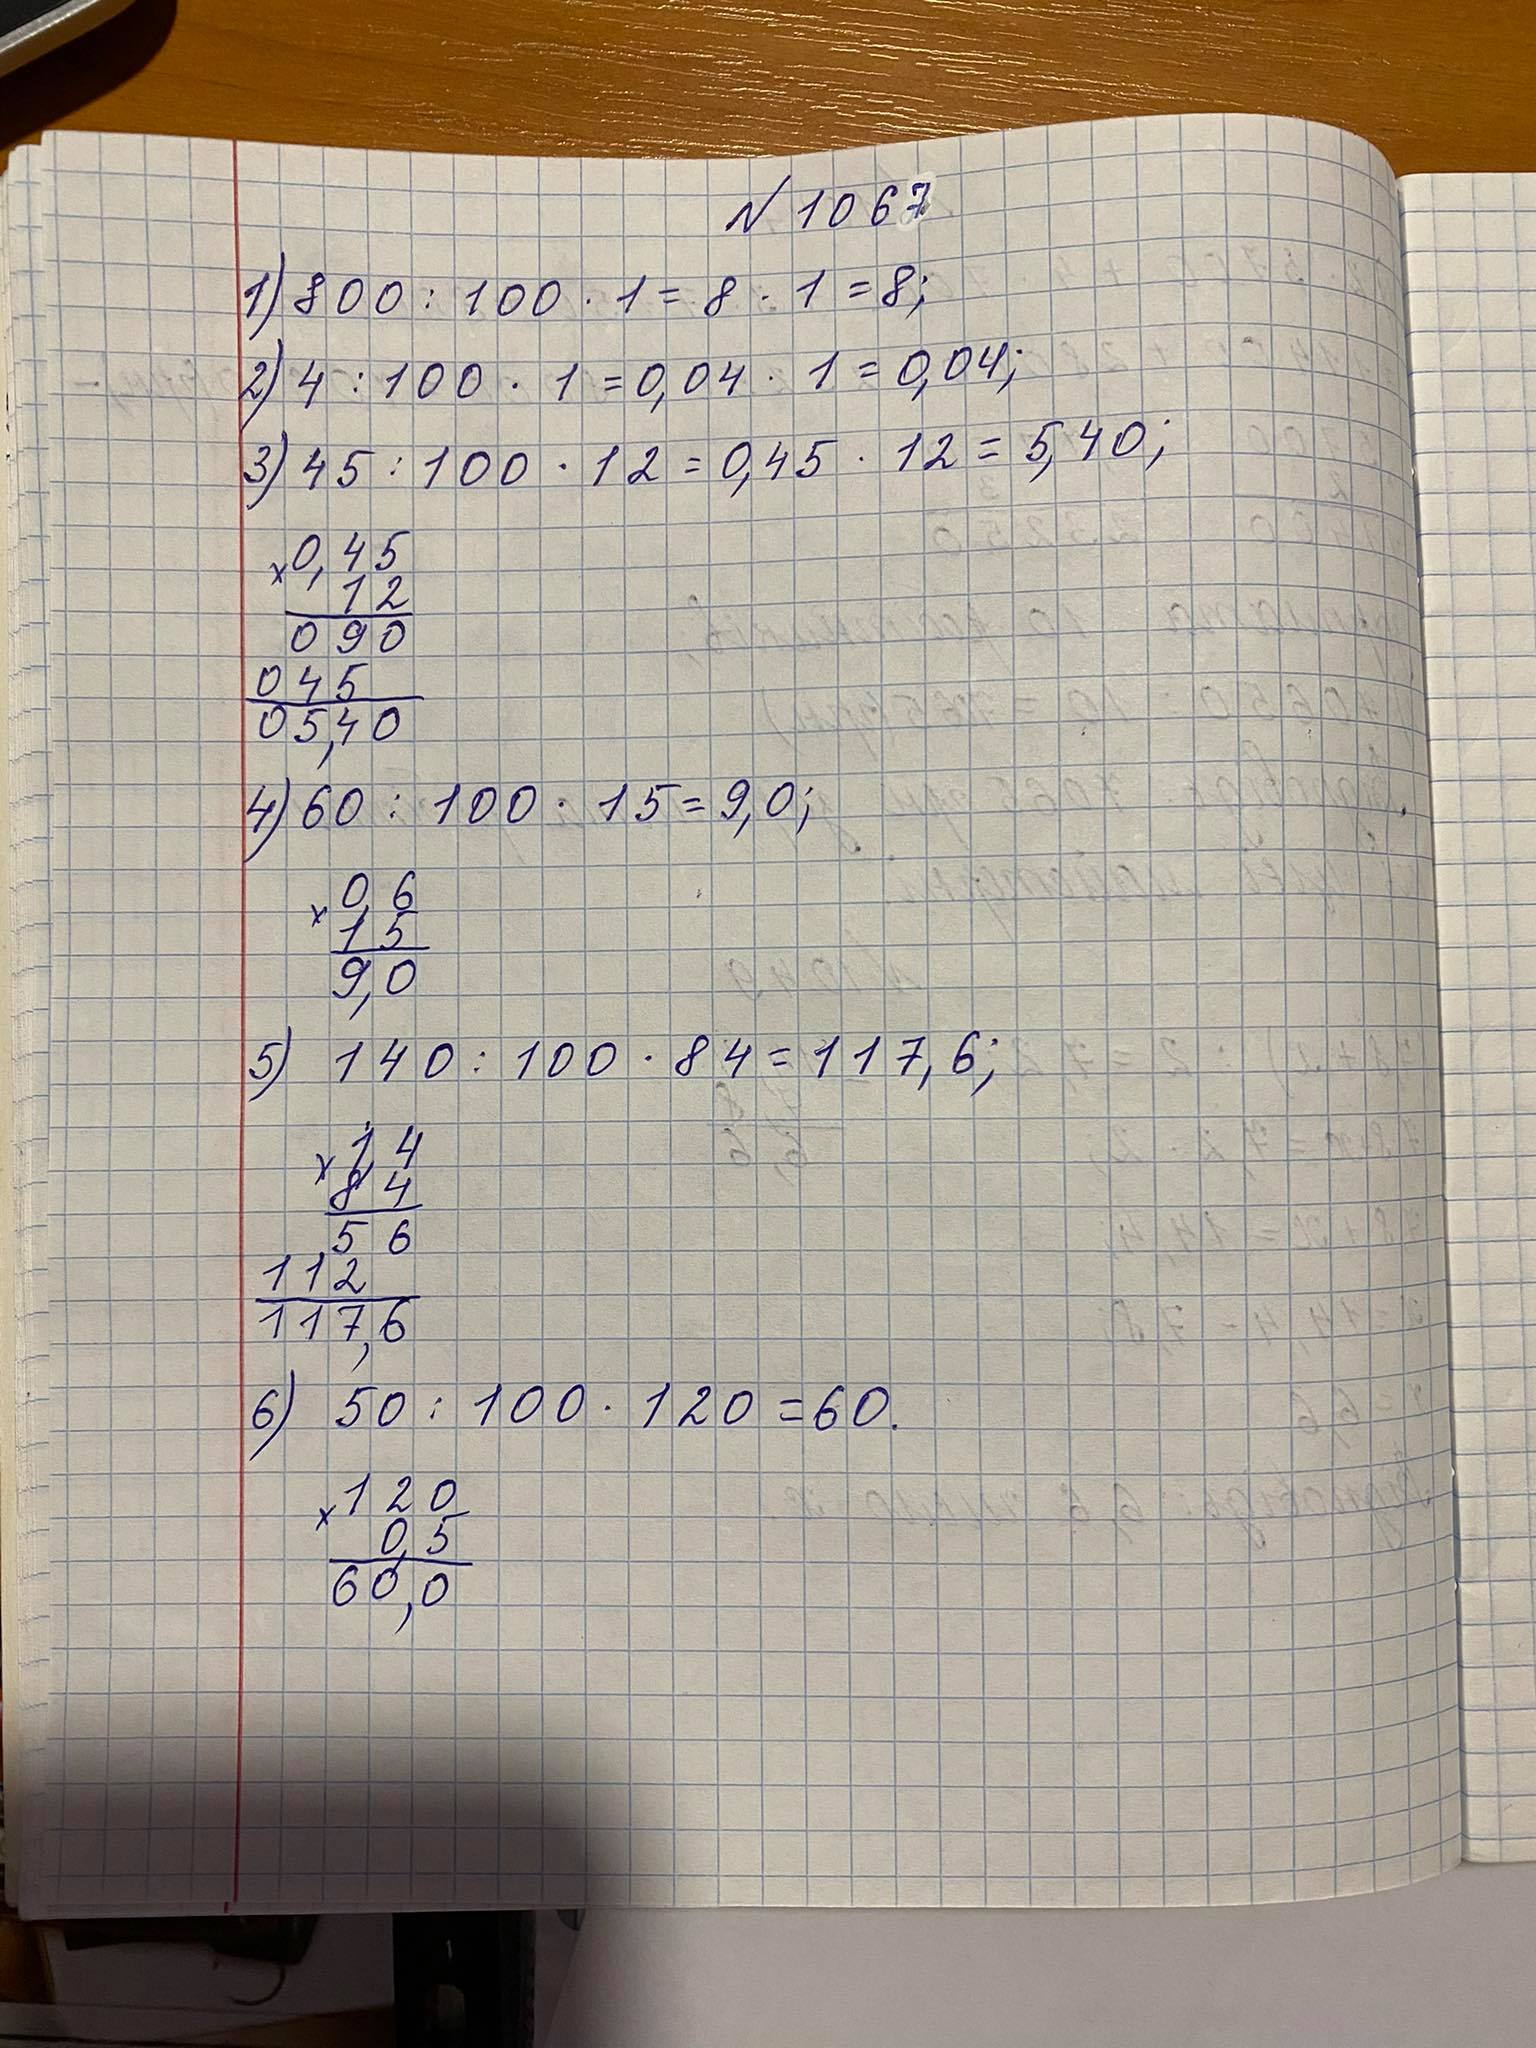 № 1067
1) 800 : 100 · 1 = 8 · 1 = 8;
2) 4 : 100 · 1 = 0,04 · 1 = 0,04;
3) 45 : 100 · 12 = 0,45 · 12 = 5,40;
× 0,45
12
090
045
05,40
4) 60 : 100 · 15 = 9,0;
× 0,6
15
9,0
5) 140 : 100 · 84 = 117,6;
× 1,4
84
56
112
117,6
6) 50 : 100 · 120 = 60.
× 120
0,5
60,0